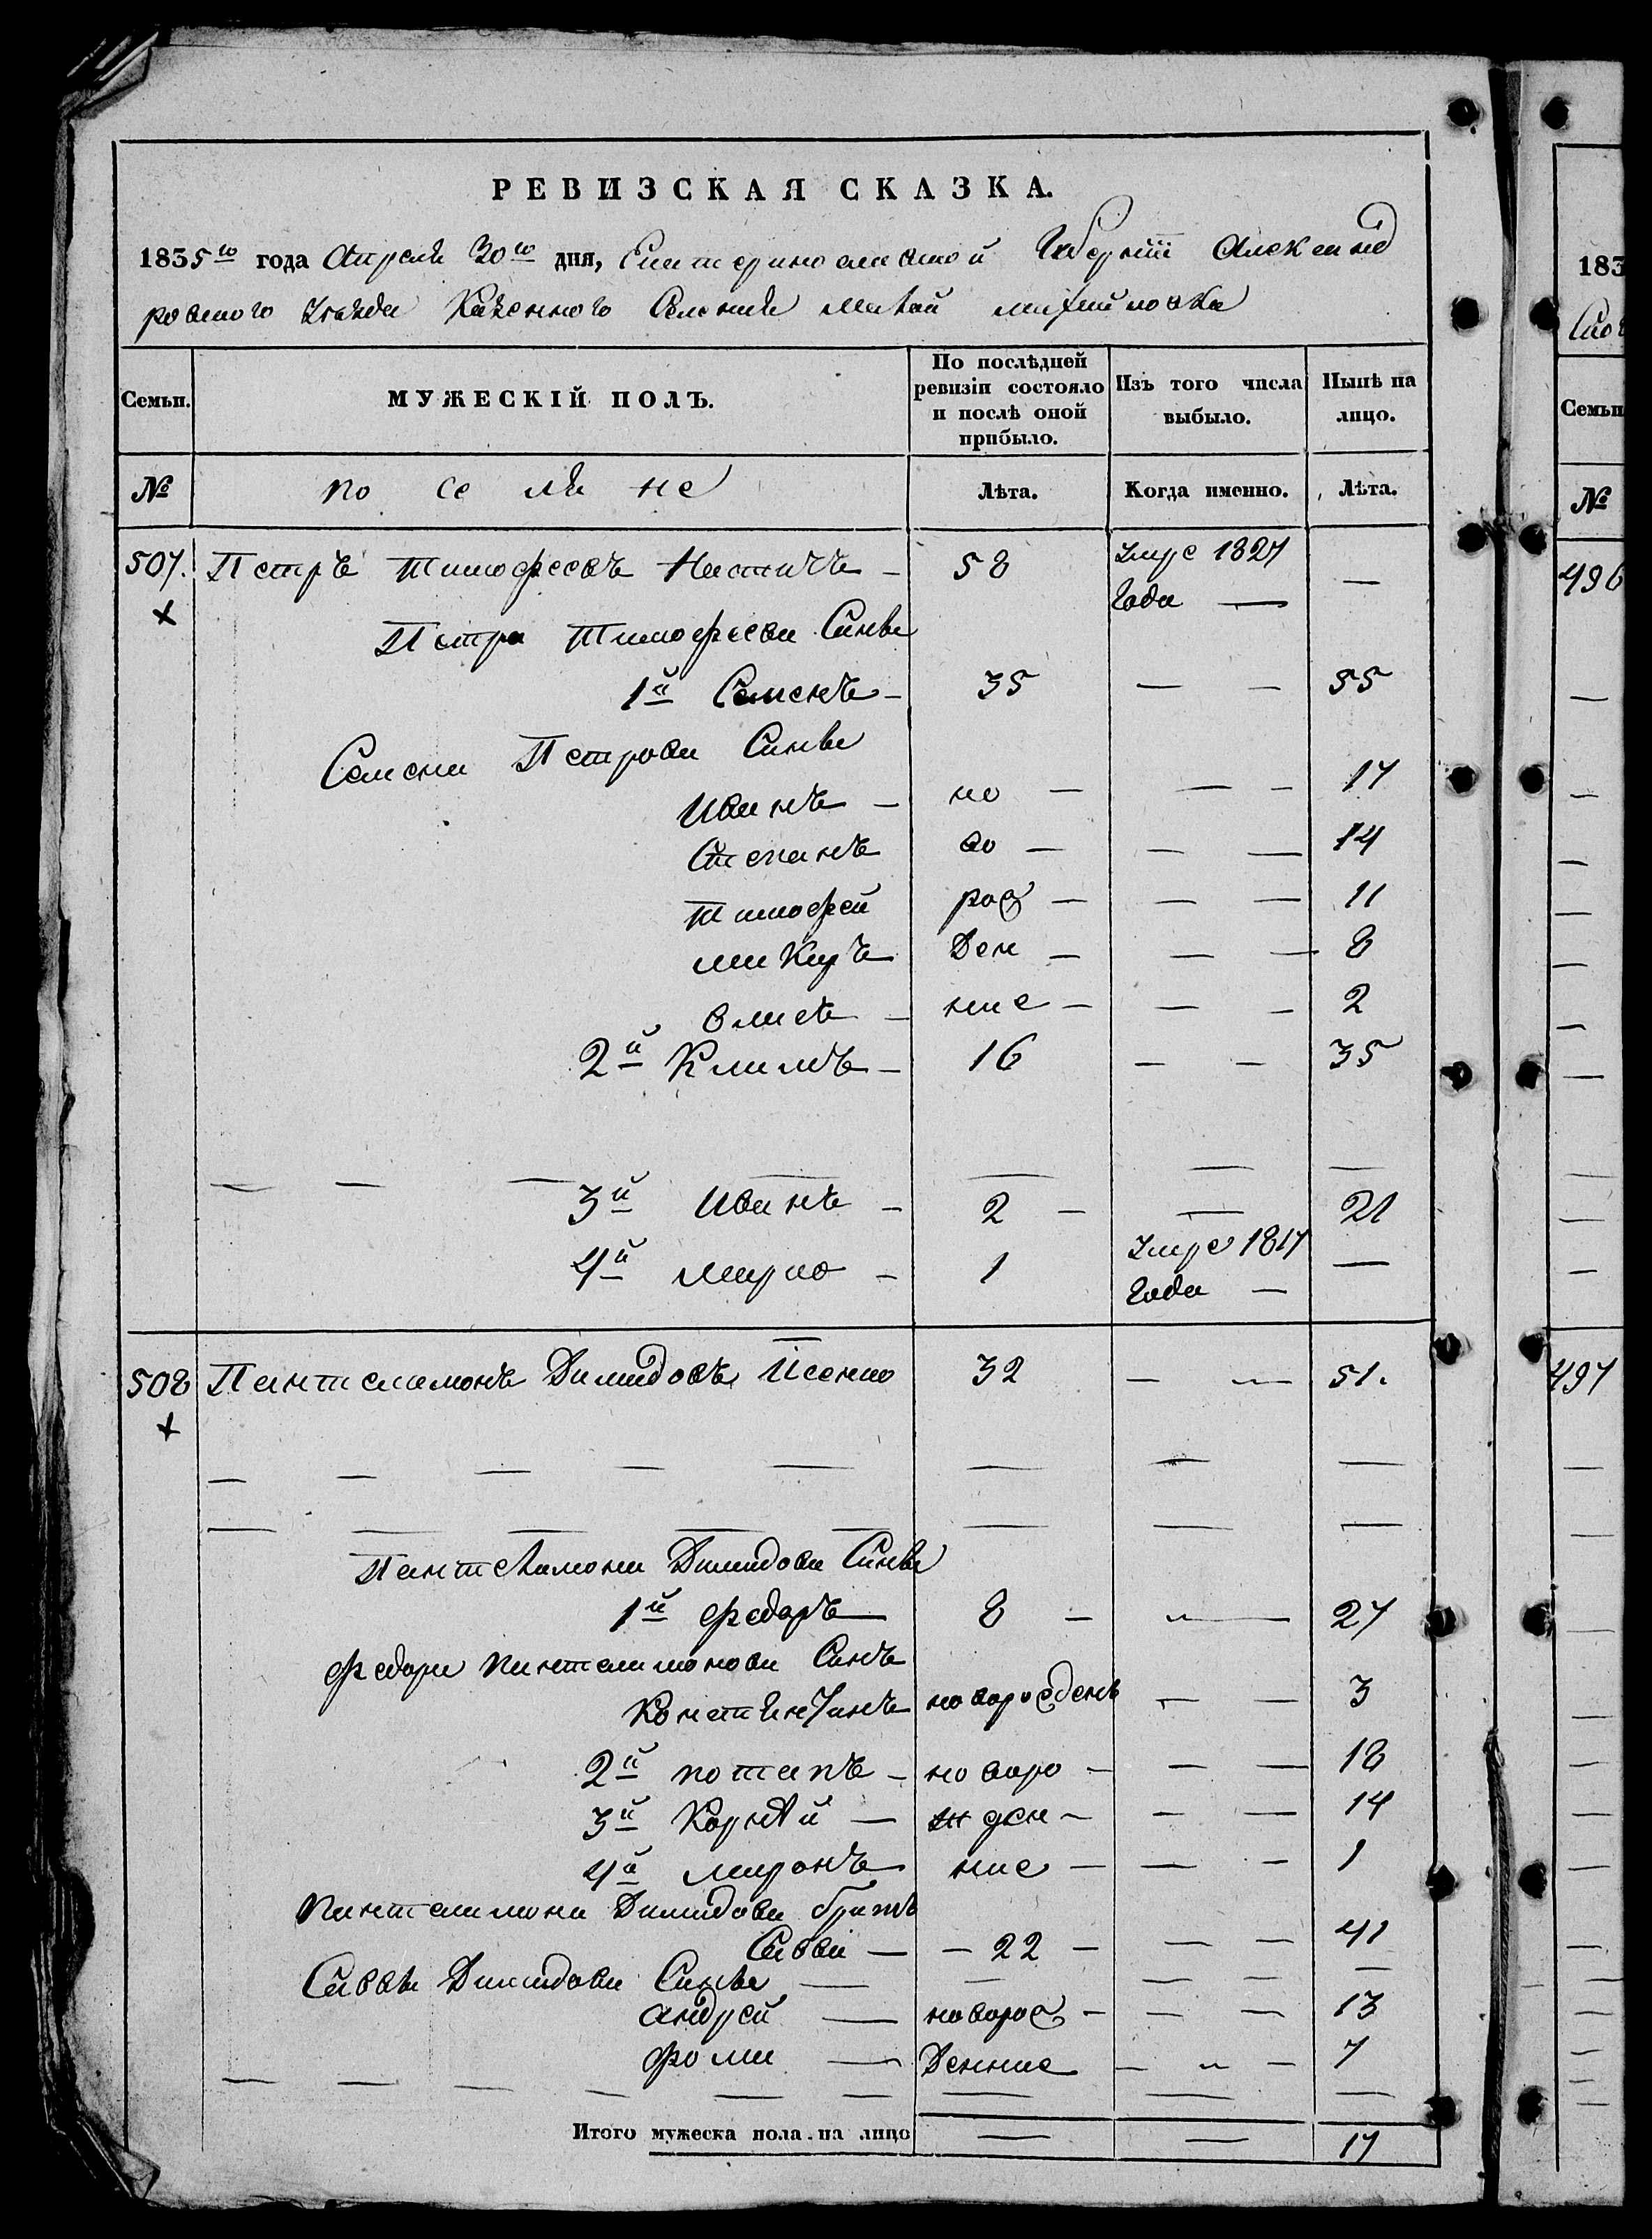 РЕВИЗСКАЯ СКАЗКА.
1835го года Апреля 30го дня, Екатеринославской Губернии Александ
ровского Уезда Казенного Селения Малой Михайловка
Семьи. МУЖЕСКІЙ ПОЛЪ. По послѣдней ревизіи состояло и послѣ оной прибыло. Изъ того числа выбыло. Нынѣ на лицо.
№ по се ля не Лѣта. Когда именно. Лѣта.
507. Петръ Тимофеевъ — 58 Умре 1827 Года — —
Петра Тимофеева Сины
1й Семенъ — 35 — — 55
Семена Петрова Сины
Иванъ — но — — — 17
Степанъ во — — — 14
Тимофей рож — — — 11
Макаръ Ден — — — 8
Власъ — ние — — — 2
2й Климъ — 16 — — 35
3й Иванъ — 2 — — 21
4й Марко — 1 Умре 1817 Года — —
508 Пантелимонъ Димидовъ 32 — — 51.
Пантелимона Димидова Сины
1й Федоръ — 8 — — 27
Федора Пантелимонова Синъ
Константинъ новорожденъ — — 3
2й Потапъ — новоро — — — 18
3й Корнѣй — жден — — — 14
4й Миронъ ние — — — 1
Пантелимона Димидова братъ
Савва — — 22 — — — 41
Саввы Димидова Сины — — — — —
Андрей — новорож — — — 13
Фома — Денние — — — 7
Итого мужеска пола на лицо — — 17
183
Семьи
№
496
497